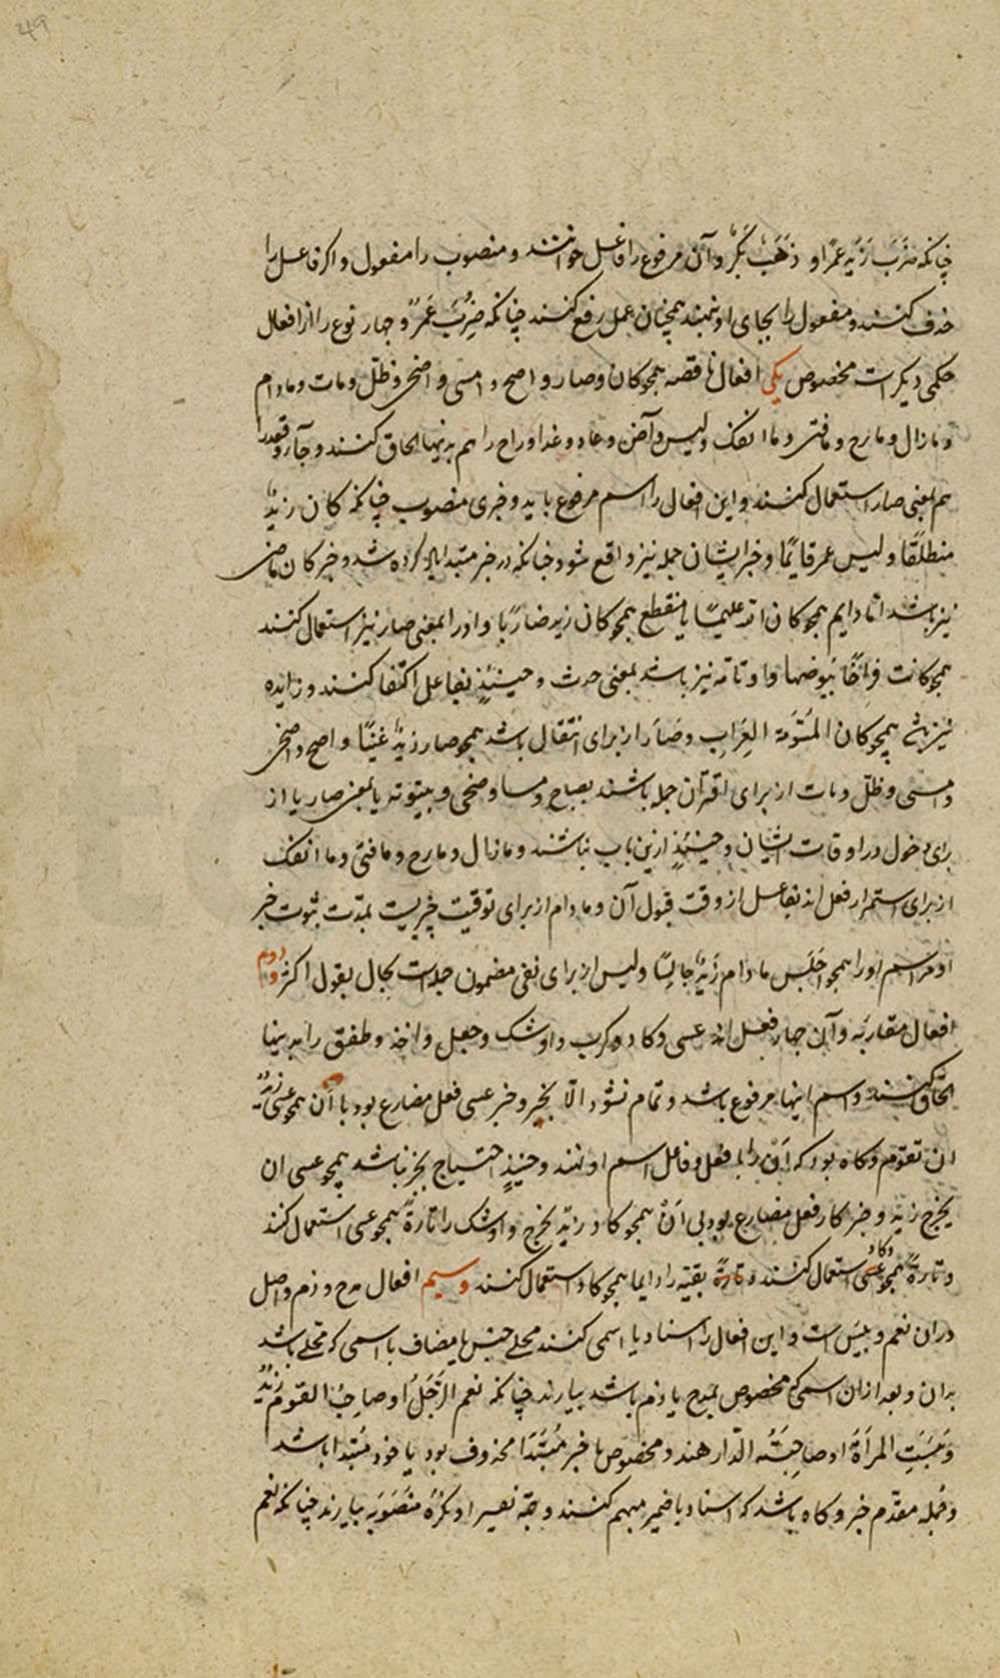 چنانکه ضَرَبَ زَیْدٌ عَمْرًا و ذَهَبَ بَکْرٌ و آن مرفوع را فاعل خوانند و منصوب را مفعول و اکر فاعل را
حذف کنند و مفعول را بجای او نهند همچنان عمل رفع کنند چنانکه ضُرِبَ عَمْرٌو و چهار نوع را از افعال
حکمی دیکر است مخصوص یکی افعال ناقصه همچو کان و صار و اصبح و امسی و اضحی و ظلّ و بات و مادام
و مازال و مابرح و مافتی و ما انفک و لیس و آض و عاد و غدا و راح را هم بدینها الحاق کنند و جآء و قعد را
هم بمعنی صار استعمال کنند و این افعال را اسم مرفوع باید و خبری منصوب چنانکه کان زیدٌ
منطلقًا و لیس عمر قایمًا و خبر ایشان جمله نیز واقع شود چنانکه در خبر مبتدا یاد کرده شد و خبر کان ماضی
نیز باشد اما دایم همچو کان الله علیمًا یا منقطع همچو کان زید ضاربًا و او را بمعنی صار نیز استعمال کنند
همچو کانت فراخًا بیوضها و او تامه نیز باشد بمعنی حدث و حینئذٍ بفاعل اکتفا کنند و زایده
نیز همچو کان المسوّمة العِرَابِ و صَارَ از برای انتقال باشد همچو صار زیدٌ غنیًا و اصبح و اضحی
و امسی و ظلّ و بات از برای اقتران جمله باشند بصباح و مسا و ضحی و بیتوته یا بمعنی صار یا از
برای دخول در اوقات ایشان و حینئذٍ ازین باب نباشند و مازال و مابرح و مافتی و ما انفک
از برای استمرار فعل اند بفاعل از وقت قبول آن و مادام از برای توقیت چیزیست بمدت ثبوت خبر
او مر اسم او را همچو اجلس مادام زَیْدٌ جالِسًا و لیس از برای نفی مضمون جمله است بحال بقول اکثر و دوم
افعال مقاربه و آن چهار فعل اند عسی و کاد و کرب و اوشک و جعل و اخذ و طفق را بدینها
الحاق کنند و اسم اینها مرفوع باشد و تمام نشود الّا بخبر و خبر عسی فعل مضارع بود با أن همچو عسی زیدٌ
ان تقوم و کاه بود که أن را با فعل و فاعل اسم او نهند و حینئذٍ احتیاج بخبر نباشد همچو عسی ان
یخرج زید و خبر کاد فعل مضارع بود بی أَنْ همچو کاد زیدٌ یخرج و اوشک را تارةً همچو عسی استعمال کنند
و تارةً همچو کاد استعمال کنند و بقیّه را دایما همچو کاد استعمال کنند و سیم افعال مدح و ذم و اصل
دران نعم و بئس است و این افعال را اسناد با اسمی کنند محلے جنس یا مضاف با اسمی که محلے باشد
بدان و بعد ازان اسمی که مخصوص بمدح یا ذم باشد بیارند چنانکه نعم الرَّجُلُ او صاحِبُ القَومِ زیدٌ
و بئسَتِ المرأَةُ او صاحِبَتُه الدّار هند و مخصوص یا خبر مُبتَدَا محذوف بود یا خود مُبتدا باشد
و جمله مقدّم خبر و کاه باشد که اسناد با ضمیر مبهم کنند و بجهة تفسیر او نکرهٔ منصوبه بیارند چنانکه نعم